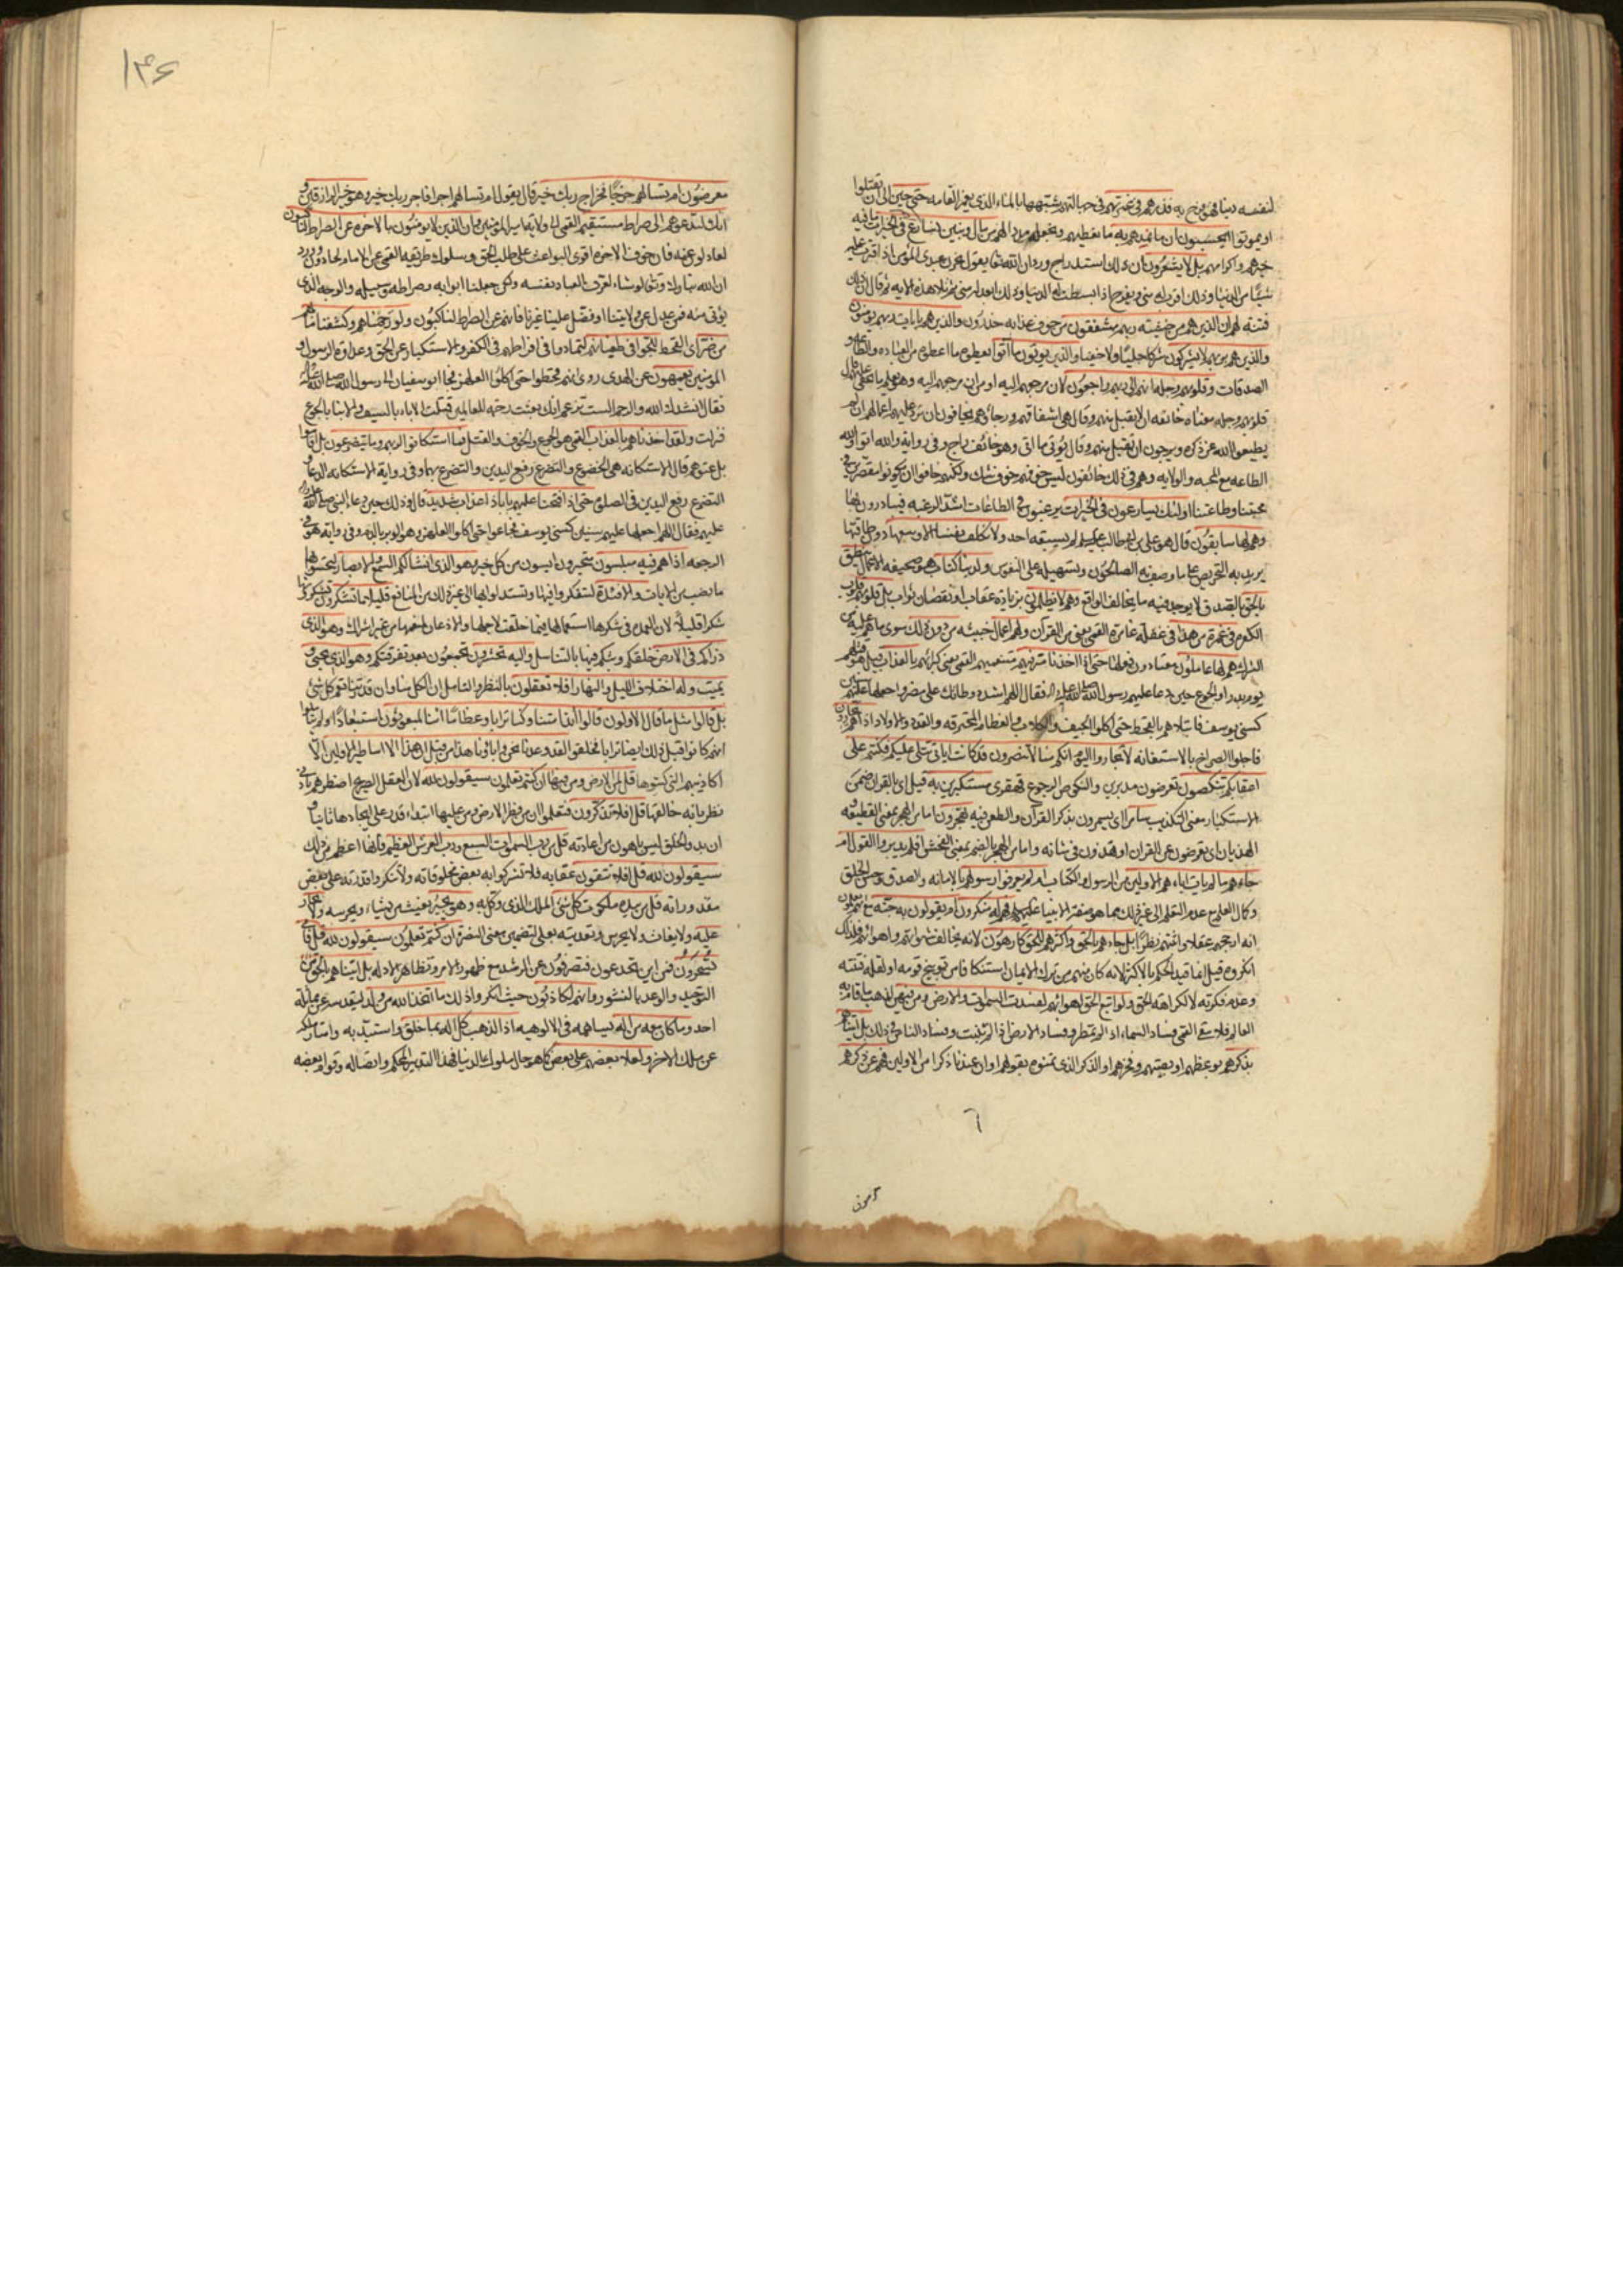 لنفسه دينا فهو فرح به فذرهم في غمرتهم في جهالتهم شبهها بالماء الذي يغمر القامه حتى حين الى ان يقتلوا
او يموتوا ايحسبون ان ما نمدهم به ما نعطيهم ونجعله مددا لهم من مال وبنين نسارع لهم في الخيرات فيما فيه
خيرهم واكرامهم بل لا يشعرون ان ذلك استدراج وروى ان الله تعالى يقول يحزن عبدي المؤمن اذا اقترت عليه
شيئا من الدنيا وذلك اقرب له مني ويفرح اذا بسطت له الدنيا وذلك ابعد له مني ثم تلا هذه الايه ثم قال ان ذلك
فتنة لهم ان الذين هم من خشية ربهم مشفقون من خوف عذابه حذرون والذين هم بايات ربهم يؤمنون
والذين هم بربهم لا يشركون شركا جليا ولا خفيا والذين يؤتون ما آتوا يعطون ما اعطوه من العباده والطاعه و
الصدقات وقلوبهم وجله انهم الى ربهم راجعون لان مرجعهم اليه او من ان مرجعهم اليه وهو يعلم ما يخفى عليهم قال
قلوبهم وجله معناه خائفه ان لا يقبل منهم وقال هي اشفاقهم ورجاؤهم يخافون ان ترد عليهم اعمالهم ان لم
يطيعوا الله عز ذكره ويرجون ان تقبل منهم وقال يؤتى ما اتى وهو خائف راج وفي رواية والله اتوا والله
الطاعه مع المحبه والولايه وهم في ذلك خائفون ليس خوفهم خوف شك ولكنهم خافوا ان يكونوا مقصرين في
محبتنا وطاعتنا اولئك يسارعون في الخيرات يرغبون في الطاعات اشد الرغبه فيبادرون بها
وهم لها سابقون قال هو علي بن ابي طالب عليه السلام لم يسبقه احد ولا نكلف نفسا الا وسعها دون طاقتها
يريد به التحريص على ما وصف به الصالحون وتسهيله على النفوس ولدينا كتاب هو صحيفه الاعمال ينطق
بالحق بالصدق لا يوجد فيه ما يخالف الواقع وهم لا يظلمون بزيادة عقاب او نقصان ثواب بل قلوبهم قلوب
الكفره في غمرة من هذا في غفلة غامرة القمي يعني من القرآن ولهم اعمال خبيثه من دون ذلك سوى ما هم عليه من
الشرك هم لها عاملون معتادون فعلها حتى اذا اخذنا مترفيهم متنعميهم القمي يعني كبرائهم بالعذاب قيل هو قتلهم
يوم بدر او الجوع حين دعا عليهم رسول الله صلى الله عليه واله فقال اللهم اشدد وطاتك على مضر واجعلها عليهم سنين
كسني يوسف فابتلاهم بالقحط حتى اكلوا الجيف والكلاب والعظام المحترقه والقد والاولاد اذا هم يجارون
فاجاوا الصراخ بالاستغاثه لا تجاروا اليوم انكم منا لا تنصرون قد كانت اياتي تتلى عليكم فكنتم على
اعقابكم تنكصون تعرضون مدبرين والنكوص الرجوع قهقرى مستكبرين به قيل اي بالقران ضمن
الاستكبار معنى التكذيب سامرا اي يسمرون بذكر القرآن والطعن فيه تهجرون اما من الهجر بمعنى القطيعه و
الهذيان اي تعرضون عن القران او تهذون في شانه واما من الهجر بالضم بمعنى الفحش افلم يدبروا القول ام
جاءهم ما لم يات اباءهم الاولين من الرسول والكتاب ام لم يعرفوا رسولهم بالامانه والصدق وحسن الخلق
وكمال العلم مع عدم التعلم الى غير ذلك مما هو صفة الانبياء عليهم السلام فهم له منكرون ام يقولون به جنة مع انهم يعلمون
انه ارجحهم عقلا واثقبهم نظرا بل جاءهم بالحق واكثرهم للحق كارهون لانه يخالف شهواتهم واهوائهم فلذلك
انكروه قيل انما قيد الحكم بالاكثر لانه كان منهم من ترك الايمان استنكافا من توبيخ قومه او لقله فطنته
وعدم فكرته لا لكراهة الحق ولو اتبع الحق اهواءهم لفسدت السموات والارض ومن فيهن لذهب ما قام به
العالم فلا يبقى القمي فساد السماء اذا لم تمطر وفساد الارض اذا لم تنبت وفساد الناس في ذلك بل اتيناهم
بذكرهم بوعظهم او بصيتهم وفخرهم او الذكر الذي تمنوه بقولهم لو ان عندنا ذكرا من الاولين فهم عن ذكرهم
١٤۶
معرضون ام تسالهم خرجا فخراج ربك خير قال يقول ام تسالهم اجرا فاجر ربك خير وهو خير الرازقين و
انك لتدعوهم الى صراط مستقيم القمي الى ولاية امير المؤمنين وان الذين لا يؤمنون بالاخره عن الصراط لناكبون
لعادلون عنه فان خوف الاخره اقوى البواعث على طلب الحق وسلوك طريقه القمي عن الامام لحادون ورد
ان الله تبارك وتعالى لو شاء لعرف العباد نفسه ولكن جعلنا ابوابه وصراطه وسبيله والوجه الذي
يؤتى منه فمن عدل عن ولايتنا او فضل علينا غيرنا فانهم عن الصراط لناكبون ولو رحمناهم وكشفنا ما بهم
من ضر اي القحط للجوا في طغيانهم لتمادوا في افراطهم في الكفر والاستكبار عن الحق وعداوة الرسول و
المؤمنين يعمهون عن الهدى روى انهم قحطوا حتى اكلوا العلهز فجاء ابو سفيان الى رسول الله صلى الله عليه واله
فقال انشدك الله والرحم الست تزعم انك بعثت رحمة للعالمين قتلت الاباء بالسيف والابناء بالجوع
فنزلت ولقد اخذناهم بالعذاب القمي هو الجوع والخوف والقتل فما استكانوا لربهم وما يتضرعون بل اقاموا
بل عتوهم قال الاستكانه هي الخضوع والتضرع رفع اليدين والتضرع بهما وفي رواية الاستكانه الدعاء و
التضرع رفع اليدين في الصلوة حتى اذا فتحنا عليهم بابا ذا عذاب شديد قال وذلك حين دعا النبي صلى الله عليه واله
عليهم فقال اللهم اجعلها عليهم سنين كسني يوسف فجاعوا حتى اكلوا العلهز وهو الوبر بالدم وفي رواية هو في
الرجعه اذا هم فيه مبلسون متحيرون ايسون من كل خير وهو الذي انشا لكم السمع والابصار لتحسوا بها
ما نصب من الايات والافئدة لتتفكروا فيها وتستدلوا بها الى غير ذلك من المنافع قليلا ما تشكرون تشكرونها
شكرا قليلا لان العمدة في شكرها استعمالها فيما خلقت لاجلها والاذعان لمنعمها من غير اشراك وهو الذي
ذراكم في الارض خلقكم وبثكم فيها بالتناسل واليه تحشرون تجمعون بعد تفرقتكم وهو الذي يحيي و
يميت وله اختلاف الليل والنهار افلا تعقلون بالنظر والتامل ان الكل منا وان قدرتنا تعم كل شئ
بل قالوا مثل ما قال الاولون قالوا أئذا متنا وكنا ترابا وعظاما ائنا لمبعوثون استبعادا ولم يتاملوا
انهم كانوا قبل ذلك ايضا ترابا فخلقوا لقد وعدنا نحن واباؤنا هذا من قبل ان هذا الا اساطير الاولين الا
اكاذيبهم التي كتبوها قل لمن الارض ومن فيها ان كنتم تعلمون سيقولون لله لان العقل الصريح اضطرهم بادنى
نظر بانه خالقها قل افلا تذكرون فتعلموا ان من فطر الارض ومن عليها ابتداء قدر على ايجادها ثانيا و
ان بدء الخلق ليس باهون من اعادته قل من رب السموات السبع ورب العرش العظيم فانها اعظم من ذلك
سيقولون لله قل افلا تتقون عقابه فلا تشركوا به بعض مخلوقاته ولا تنكروا قدرته على بعض
مقدوراته قل من بيده ملكوت كل شئ الملك الذي وكل به وهو يجير يغيث من يشاء ويحرسه ولا يجار
عليه ولا يغاث ولا يحرس وتعديته بعلى لتضمين معنى النصرة ان كنتم تعلمون سيقولون لله قل فانى
تسحرون فمن اين تخدعون فتصرفون عن الرشد مع ظهور الامر وتظاهر الادله بل اتيناهم بالحق من
التوحيد والوعد بالنشور وانهم لكاذبون حيث انكروا ذلك ما اتخذ الله من ولد لتقدسه عن مماثلة
احد وما كان معه من اله يساهمه في الالوهيه اذا لذهب كل اله بما خلق واستبد به وامتاز ملكه
عن ملك الاخر ولعلا بعضهم على بعض كما هو حال ملوك الدنيا فهذا التدبير المحكم واتصاله وقوام بعضه